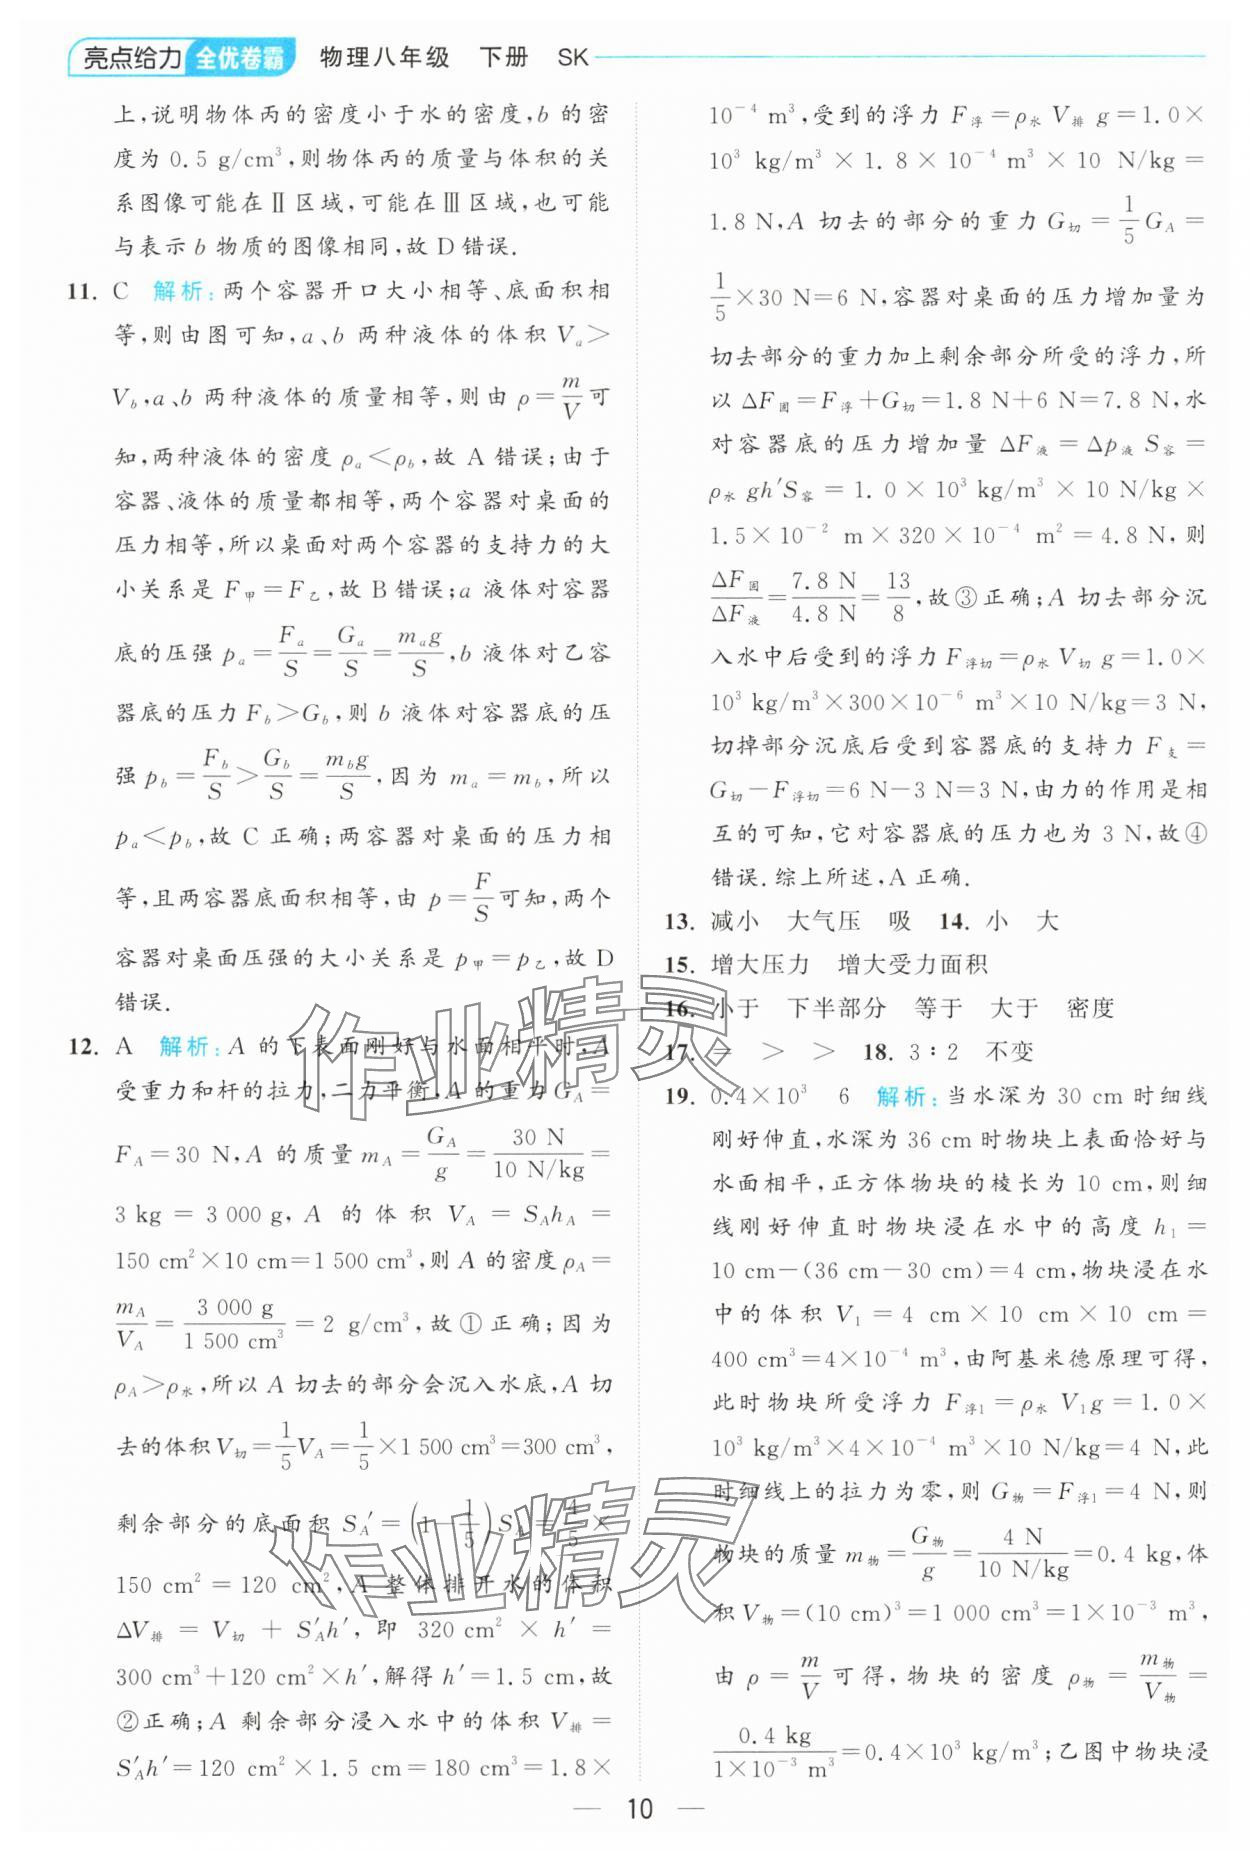 亮点给力 全优卷霸 物理八年级 下册 SK
上,说明物体丙的密度小于水的密度,b 的密
度为 0.5 g/cm³,则物体丙的质量与体积的关
系图像可能在Ⅱ区域,可能在Ⅲ区域,也可能
与表示 b 物质的图像相同,故 D 错误.
11. C 解析:两个容器开口大小相等、底面积相
等,则由图可知,a、b 两种液体的体积 Vₐ>
V_b,a、b 两种液体的质量相等,则由 ρ=m/V 可
知,两种液体的密度 ρₐ<ρ_b,故 A 错误;由于
容器、液体的质量都相等,两个容器对桌面的
压力相等,所以桌面对两个容器的支持力的大
小关系是 F甲=F乙,故 B 错误;a 液体对容器
底的压强 pₐ=Fₐ/S=Gₐ/S=mₐg/S,b 液体对乙容
器底的压力 F_b>G_b,则 b 液体对容器底的压
强 p_b=F_b/S>G_b/S=m_bg/S,因为 mₐ=m_b,所以
pₐ<p_b,故 C 正确;两容器对桌面的压力相
等,且两容器底面积相等,由 p=F/S 可知,两个
容器对桌面压强的大小关系是 p甲=p乙,故 D
错误.
12. A 解析:A 的下表面刚好与水面相平时,A
受重力和杆的拉力,二力平衡,A 的重力 G_A=
F_A=30 N,A 的质量 m_A=G_A/g=30 N/(10 N/kg)=
3 kg=3 000 g,A 的体积 V_A=S_Ah_A=
150 cm²×10 cm=1 500 cm³,则 A 的密度 ρ_A=
m_A/V_A=3 000 g/1 500 cm³=2 g/cm³,故①正确;因为
ρ_A>ρ水,所以 A 切去的部分会沉入水底,A 切
去的体积 V切=1/5 V_A=1/5×1 500 cm³=300 cm³,
剩余部分的底面积 S_A′=(1-1/5)S_A=4/5×
150 cm²=120 cm²,A 整体排开水的体积
ΔV排=V切+S_A′h′,即 320 cm²×h′=
300 cm³+120 cm²×h′,解得 h′=1.5 cm,故
②正确;A 剩余部分浸入水中的体积 V排=
S_A′h′=120 cm²×1.5 cm=180 cm³=1.8×
10⁻⁴ m³,受到的浮力 F浮=ρ水V排g=1.0×
10³ kg/m³×1.8×10⁻⁴ m³×10 N/kg=
1.8 N,A 切去的部分的重力 G切=1/5 G_A=
1/5×30 N=6 N,容器对桌面的压力增加量为
切去部分的重力加上剩余部分所受的浮力,所
以 ΔF固=F浮+G切=1.8 N+6 N=7.8 N,水
对容器底的压力增加量 ΔF液=Δp液S容=
ρ水gh′S容=1.0×10³ kg/m³×10 N/kg×
1.5×10⁻² m×320×10⁻⁴ m²=4.8 N,则
ΔF固/ΔF液=7.8 N/4.8 N=13/8,故③正确;A 切去部分沉
入水中后受到的浮力 F浮切=ρ水V切g=1.0×
10³ kg/m³×300×10⁻⁶ m³×10 N/kg=3 N,
切掉部分沉底后受到容器底的支持力 F支=
G切-F浮切=6 N-3 N=3 N,由力的作用是相
互的可知,它对容器底的压力也为 3 N,故④
错误.综上所述,A 正确.
13. 减小 大气压 吸 14. 小 大
15. 增大压力 增大受力面积
16. 小于 下半部分 等于 大于 密度
17. = > > 18. 3∶2 不变
19. 0.4×10³ 6 解析:当水深为 30 cm 时细线
刚好伸直,水深为 36 cm 时物块上表面恰好与
水面相平,正方体物块的棱长为 10 cm,则细
线刚好伸直时物块浸在水中的高度 h₁=
10 cm-(36 cm-30 cm)=4 cm,物块浸在水
中的体积 V₁=4 cm×10 cm×10 cm=
400 cm³=4×10⁻⁴ m³,由阿基米德原理可得,
此时物块所受浮力 F浮₁=ρ水V₁g=1.0×
10³ kg/m³×4×10⁻⁴ m³×10 N/kg=4 N,此
时细线上的拉力为零,则 G物=F浮₁=4 N,则
物块的质量 m物=G物/g=4 N/(10 N/kg)=0.4 kg,体
积 V物=(10 cm)³=1 000 cm³=1×10⁻³ m³,
由 ρ=m/V 可得,物块的密度 ρ物=m物/V物=
0.4 kg/(1×10⁻³ m³)=0.4×10³ kg/m³;乙图中物块浸
作业精灵
作业精灵
— 10 —